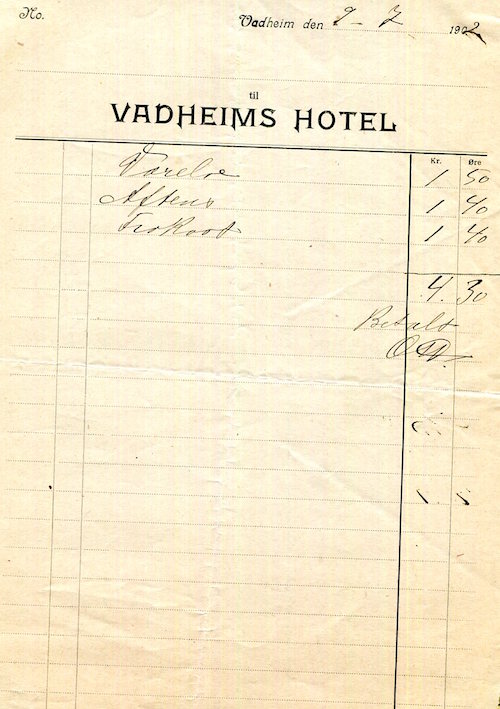 No.
Vadheim den 9 - 7 1902
til
VADHEIMS HOTEL
Kr. Øre
Værelse 1 50
Aftens 1 40
Frokost 1 40
4. 30
Betalt